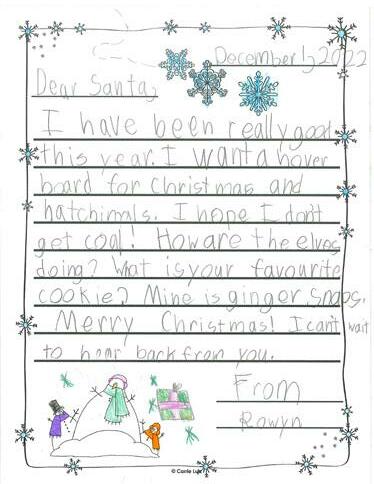 December 1, 2022
Dear Santa,
I have been really good
this year. I want a hover
board for christmas and
hatchimals. I hope I don't
get coal! How are the elves
doing? What is your favourite
cookie? Mine is ginger snaps.
Merry Christmas! I can't wait
to hear back from you.
From
Rowyn
© Carrie Lutz